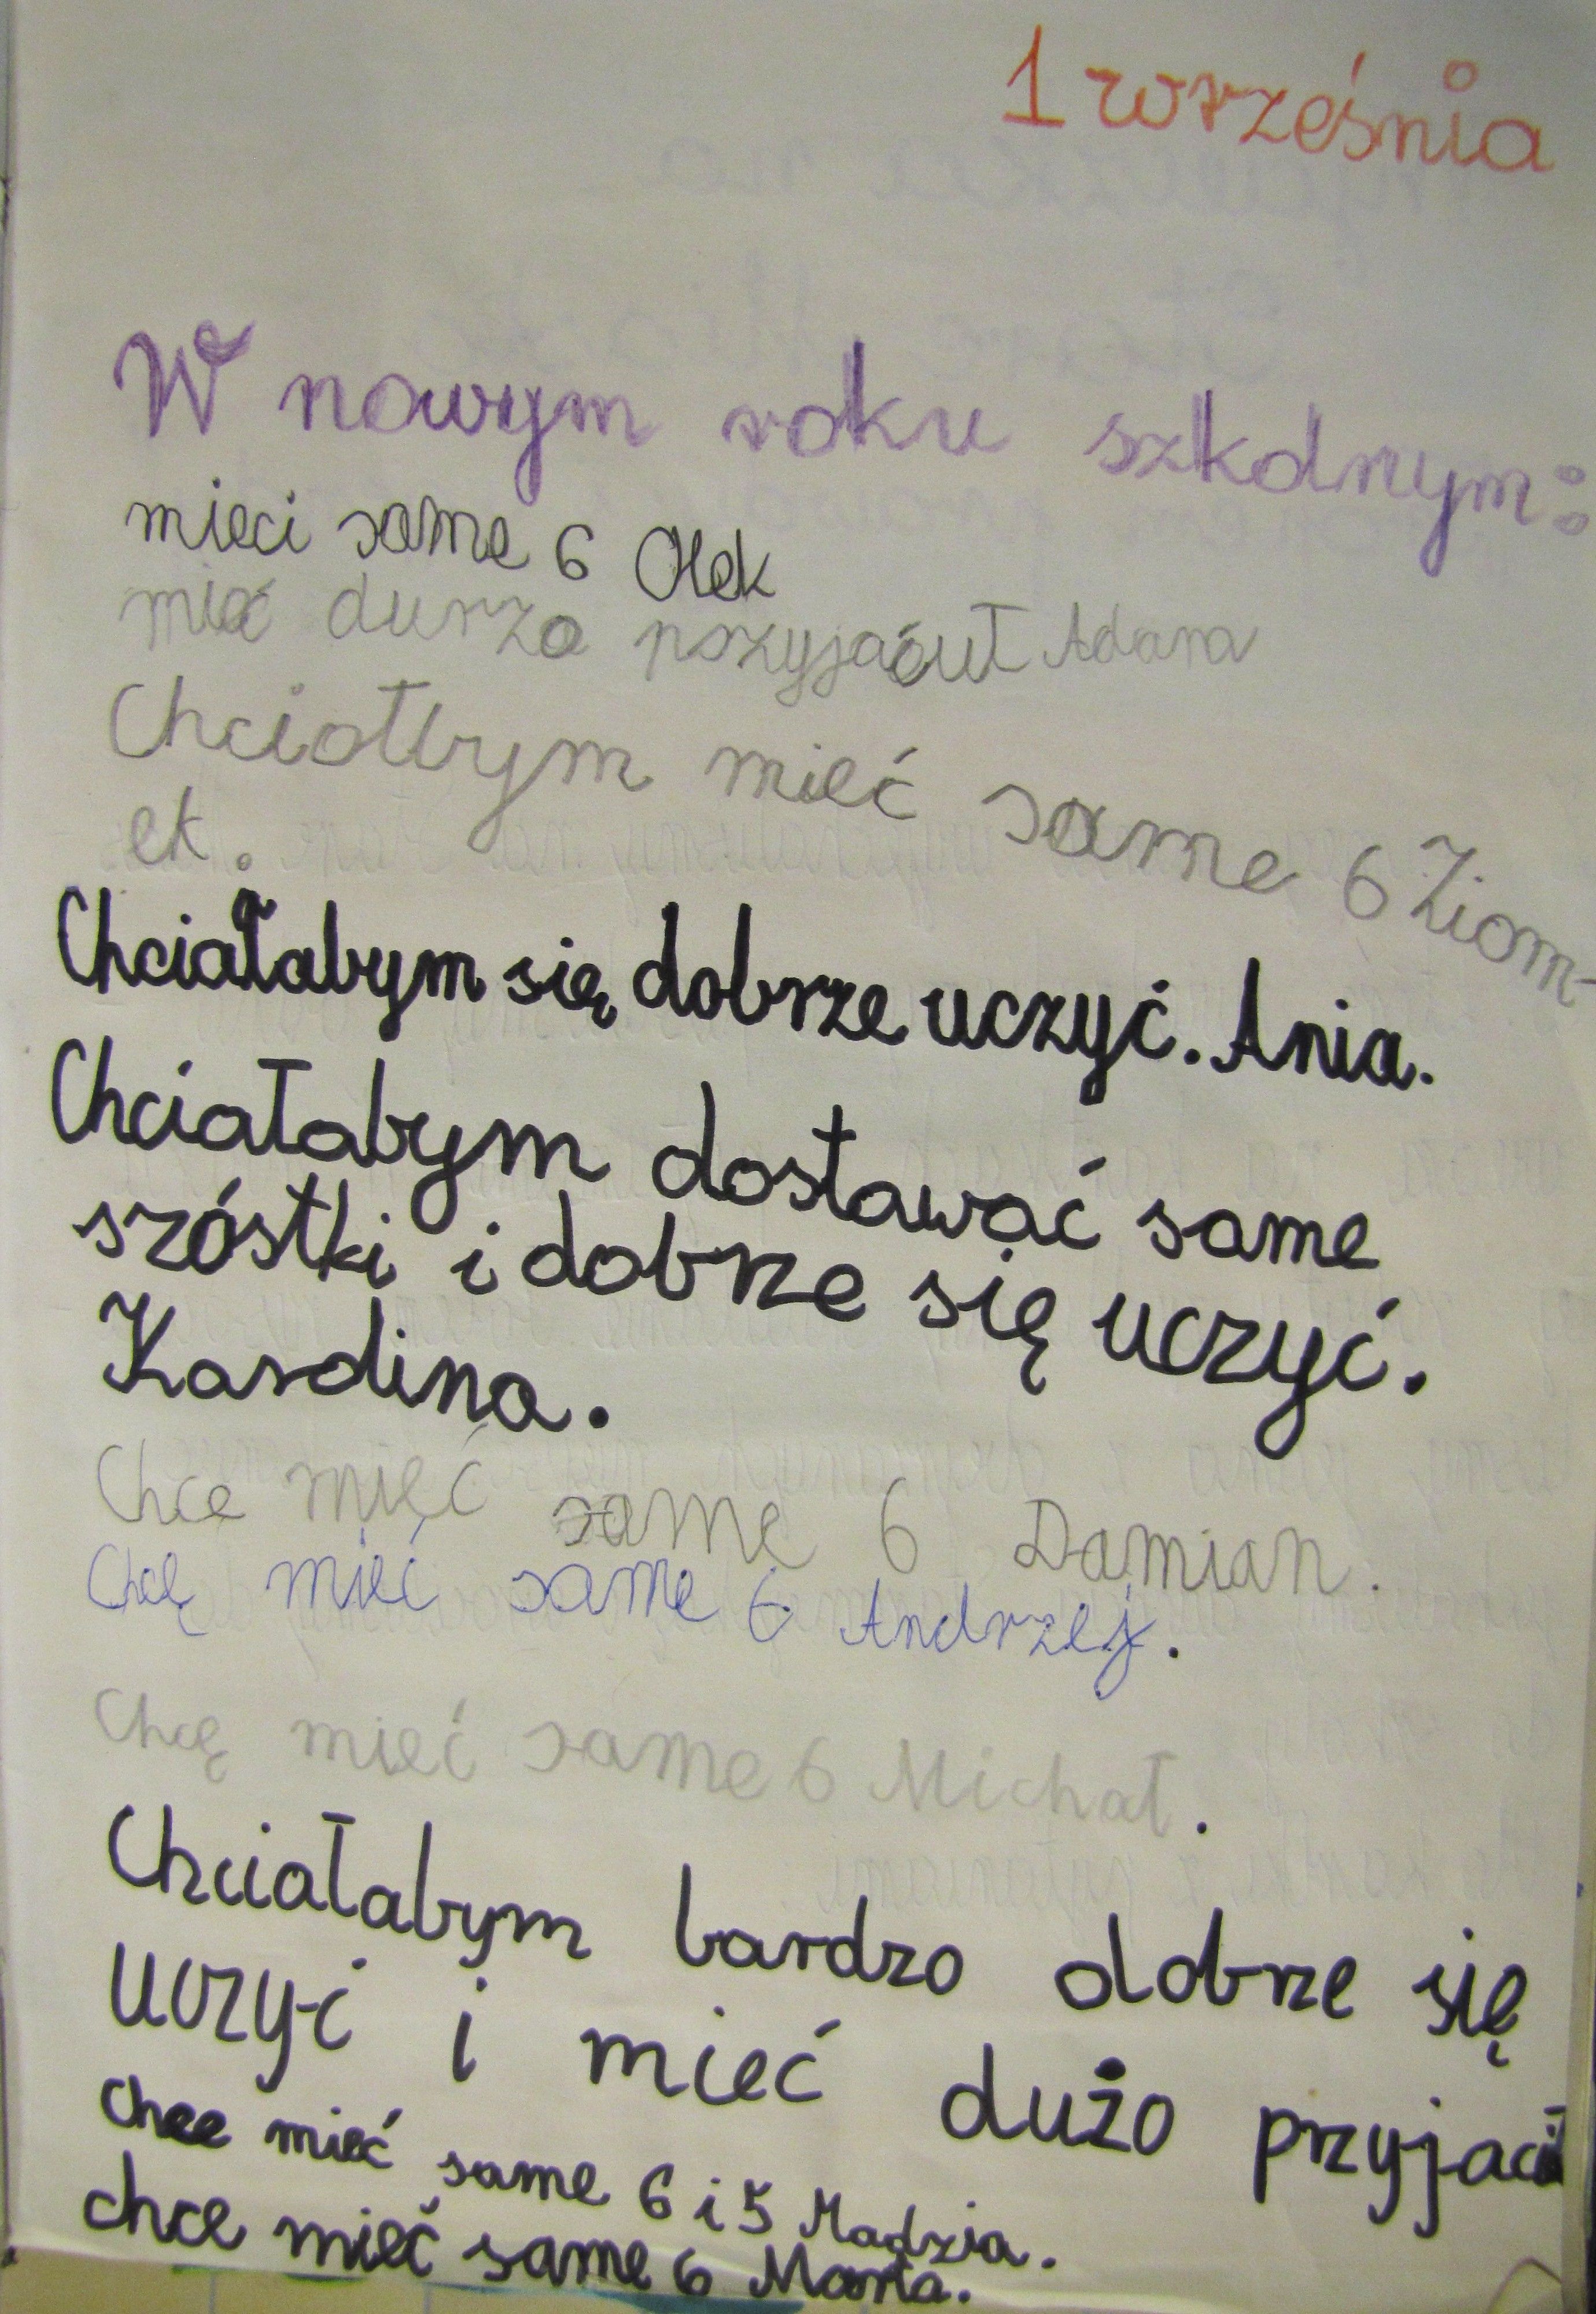 1 września
W nowym roku szkolnym:
mieci same 6 Olek
mieć durzo pszyjaćuł Adam
Chciałbym mieć same 6 Ziom-
ek.
Chciałabym się dobrze uczyć. Ania.
Chciałabym dostawać same
szóstki i dobrze się uczyć.
Karolina.
Chce mieć same 6 Damian.
Chcę mieć same 6 Andrzej.
Chcę mieć same 6 Michał.
Chciałabym bardzo dobrze się
uczyć i mieć dużo
Chce mieć same 6 i 5 Madzia.
chce mieć same 6 Marta.